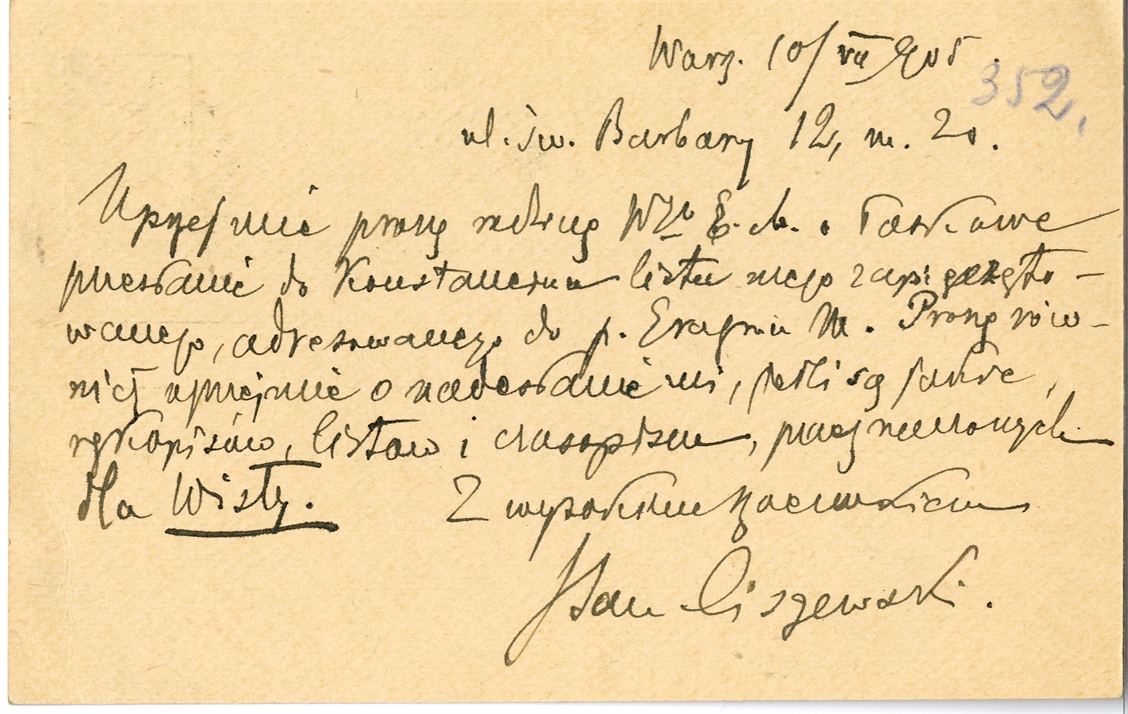 Warz. 10/VII 905.
352.
ul. św. Barbary 12, m. 20.
Uprzejmie proszę W. E. M. o łaskawe
przesłanie do Konstancina listu mego zapieczęto-
wanego, adresowanego do p. Erazma M. Proszę rów-
nież uprzejmie o nadesłanie mi, jeśli są jakie,
rękopisów, listów i czasopism, przeznaczonych
dla Wisły. Z wysokiem poważaniem
Stan Ciszewski.